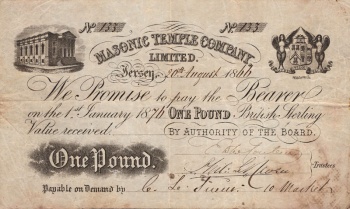 No 133 No 133
MASONIC TEMPLE COMPANY,
LIMITED.
Jersey, 20th August 1866
We Promise to pay the Bearer
on the 1st January 1876 ONE POUND British Sterling
Value received. BY AUTHORITY OF THE BOARD.
One Pound. Trustees
Payable on Demand by